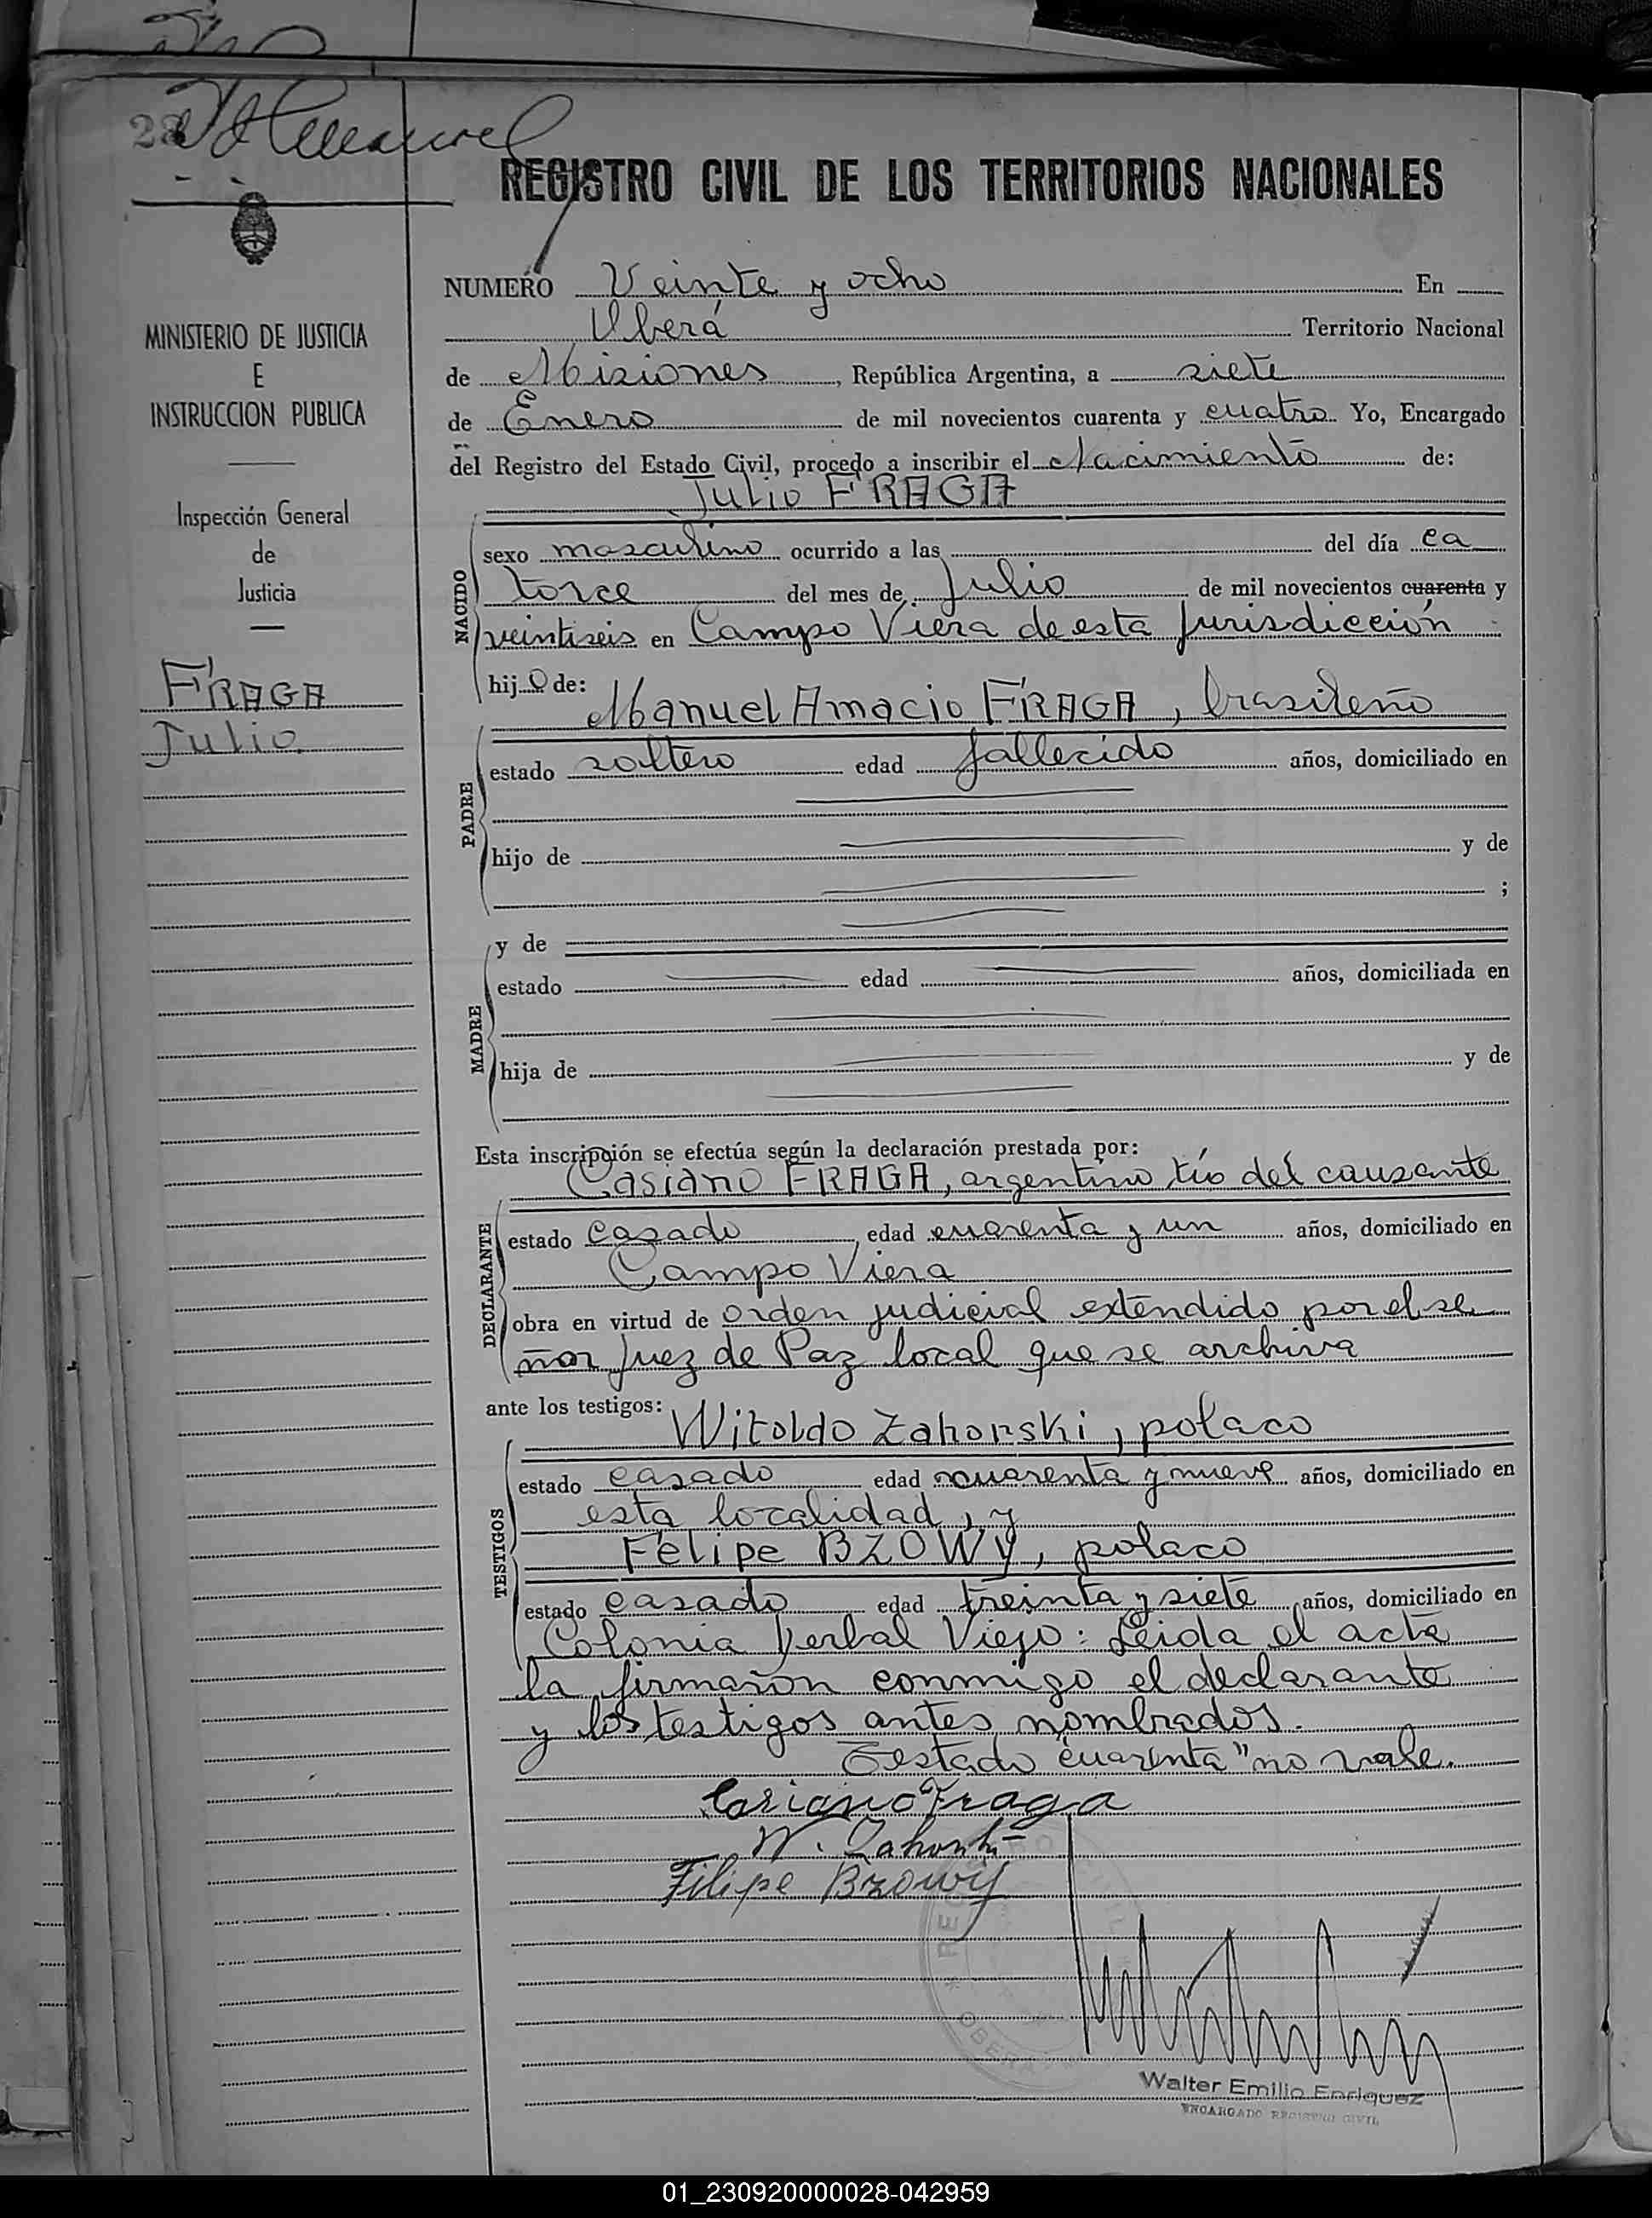 28
REGISTRO CIVIL DE LOS TERRITORIOS NACIONALES
MINISTERIO DE JUSTICIA
E
INSTRUCCION PUBLICA
Inspección General
de
Justicia
FRAGA
Julio
NUMERO Veinte y ocho En
Oberá Territorio Nacional
de Misiones, República Argentina, a siete
de Enero de mil novecientos cuarenta y cuatro Yo, Encargado
del Registro del Estado Civil, procedo a inscribir el Nacimiento de:
Julio FRAGA
NACIDO
sexo masculino ocurrido a las del día ca
torce del mes de Julio de mil novecientos cuarenta y
veintiseis en Campo Viera de esta Jurisdicción
hijo de:
Manuel Amacio FRAGA, brasileño
PADRE
estado soltero edad fallecido años, domiciliado en
hijo de y de
;
MADRE
y de
estado edad años, domiciliada en
hija de y de
Esta inscripción se efectúa según la declaración prestada por:
Casiano FRAGA, argentino tío del causante
DECLARANTE
estado casado edad cuarenta y un años, domiciliado en
Campo Viera
obra en virtud de orden judicial extendido por el se
ñor Juez de Paz local que se archiva
ante los testigos:
Witoldo Zahorski, polaco
TESTIGOS
estado casado edad cuarenta y nueve años, domiciliado en
esta localidad, y
Felipe BZOWY, polaco
estado casado edad treinta y siete años, domiciliado en
Colonia Yerbal Viejo: Leida el acta
la firmaron conmigo el declarante
y los testigos antes nombrados.
Testado "cuarenta" no vale.
Casiano Fraga
W. Zahorski
Filipe Bzowy
OBERA
Walter Emilio Enriquez
ENCARGADO REGISTRO CIVIL
01_230920000028-042959